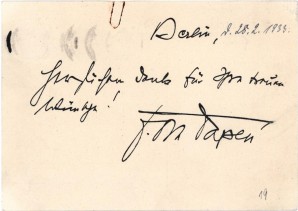 Berlin, d. 28.2.1934.
Herzlichen Dank für Ihre treuen
Wünsche!
F. v. Papen
19